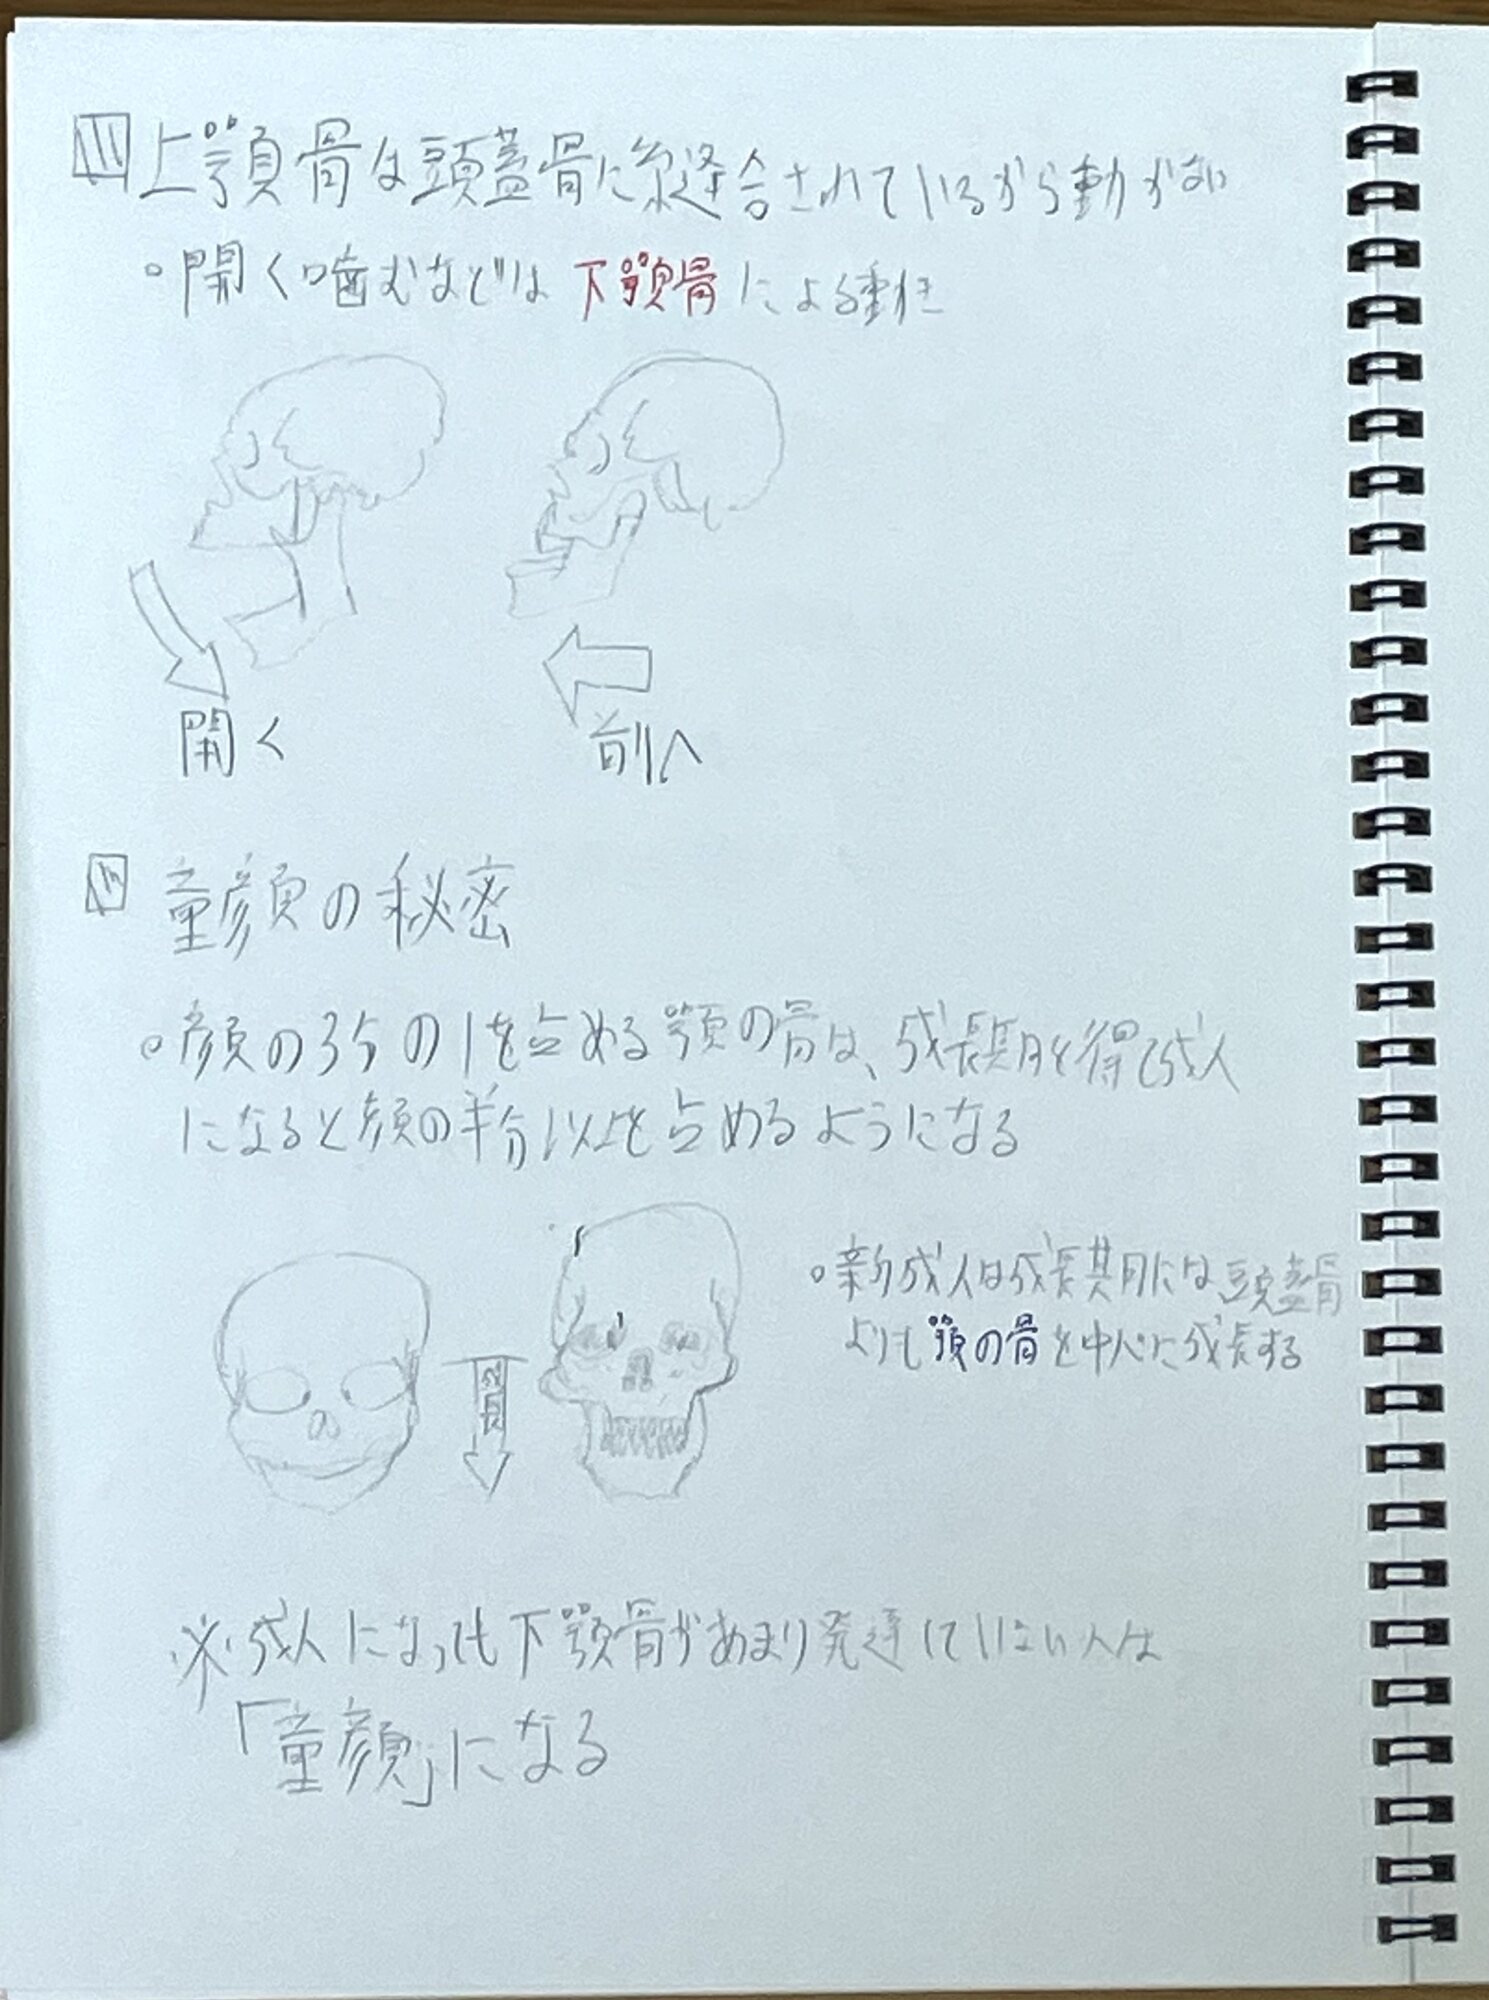 上顎骨は頭蓋骨に縫合されているから動かない
。開く噛むなどは下顎骨による動き
開く
前へ
童顔の秘密
。顔の3分の1を占める顎の骨は、成長期を得て成人
になると顔の半分以上を占めるようになる
。新成人は成長期には、頭蓋骨
よりも顎の骨を中心に成長する
※成人になっても下顎骨があまり発達していない人は
「童顔」になる